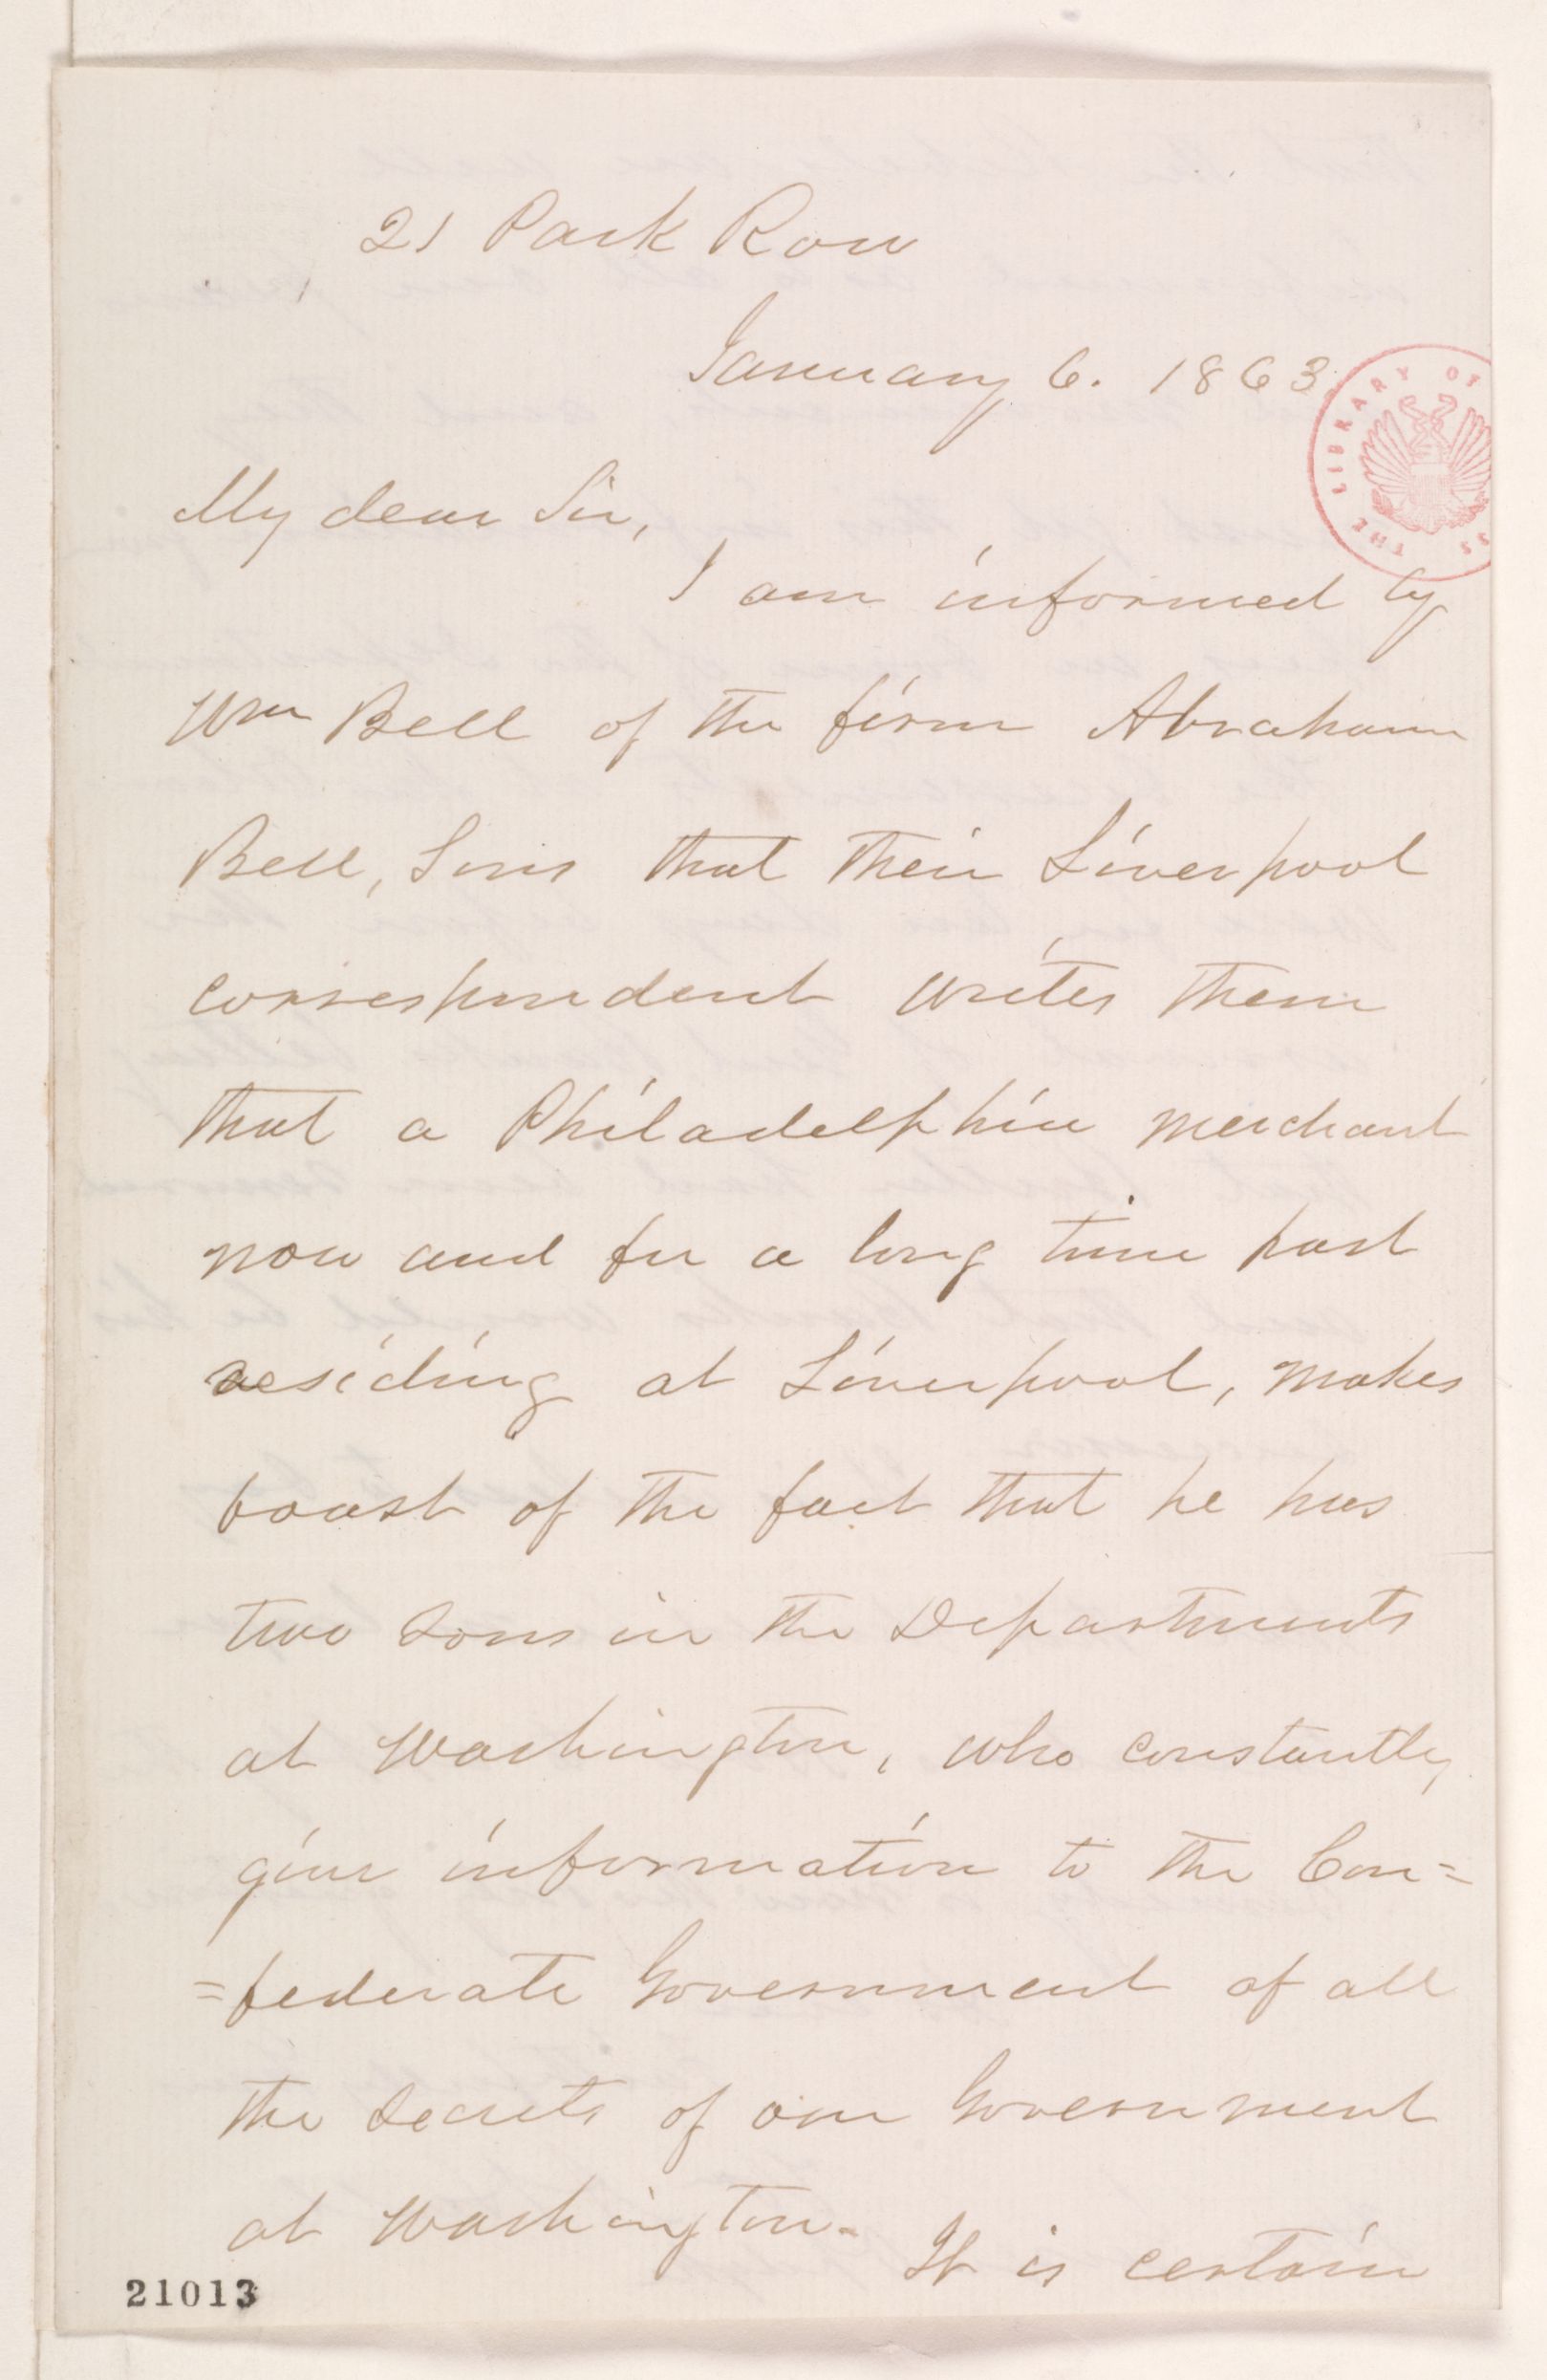 21 Park Row
January 6. 1863.
THE LIBRARY OF
SS
My dear Sir,
I am informed by
Wm Bell of the firm Abraham
Bell, Sons that their Liverpool
correspondent writes them
that a Philadelphia merchant
now and for a long time past
residing at Liverpool, makes
boast of the fact that he has
two sons in the Departments
at Washington, who constantly
give information to the Con=
=federate Government of all
the secrets of our Government
at Washington. It is certain
21013